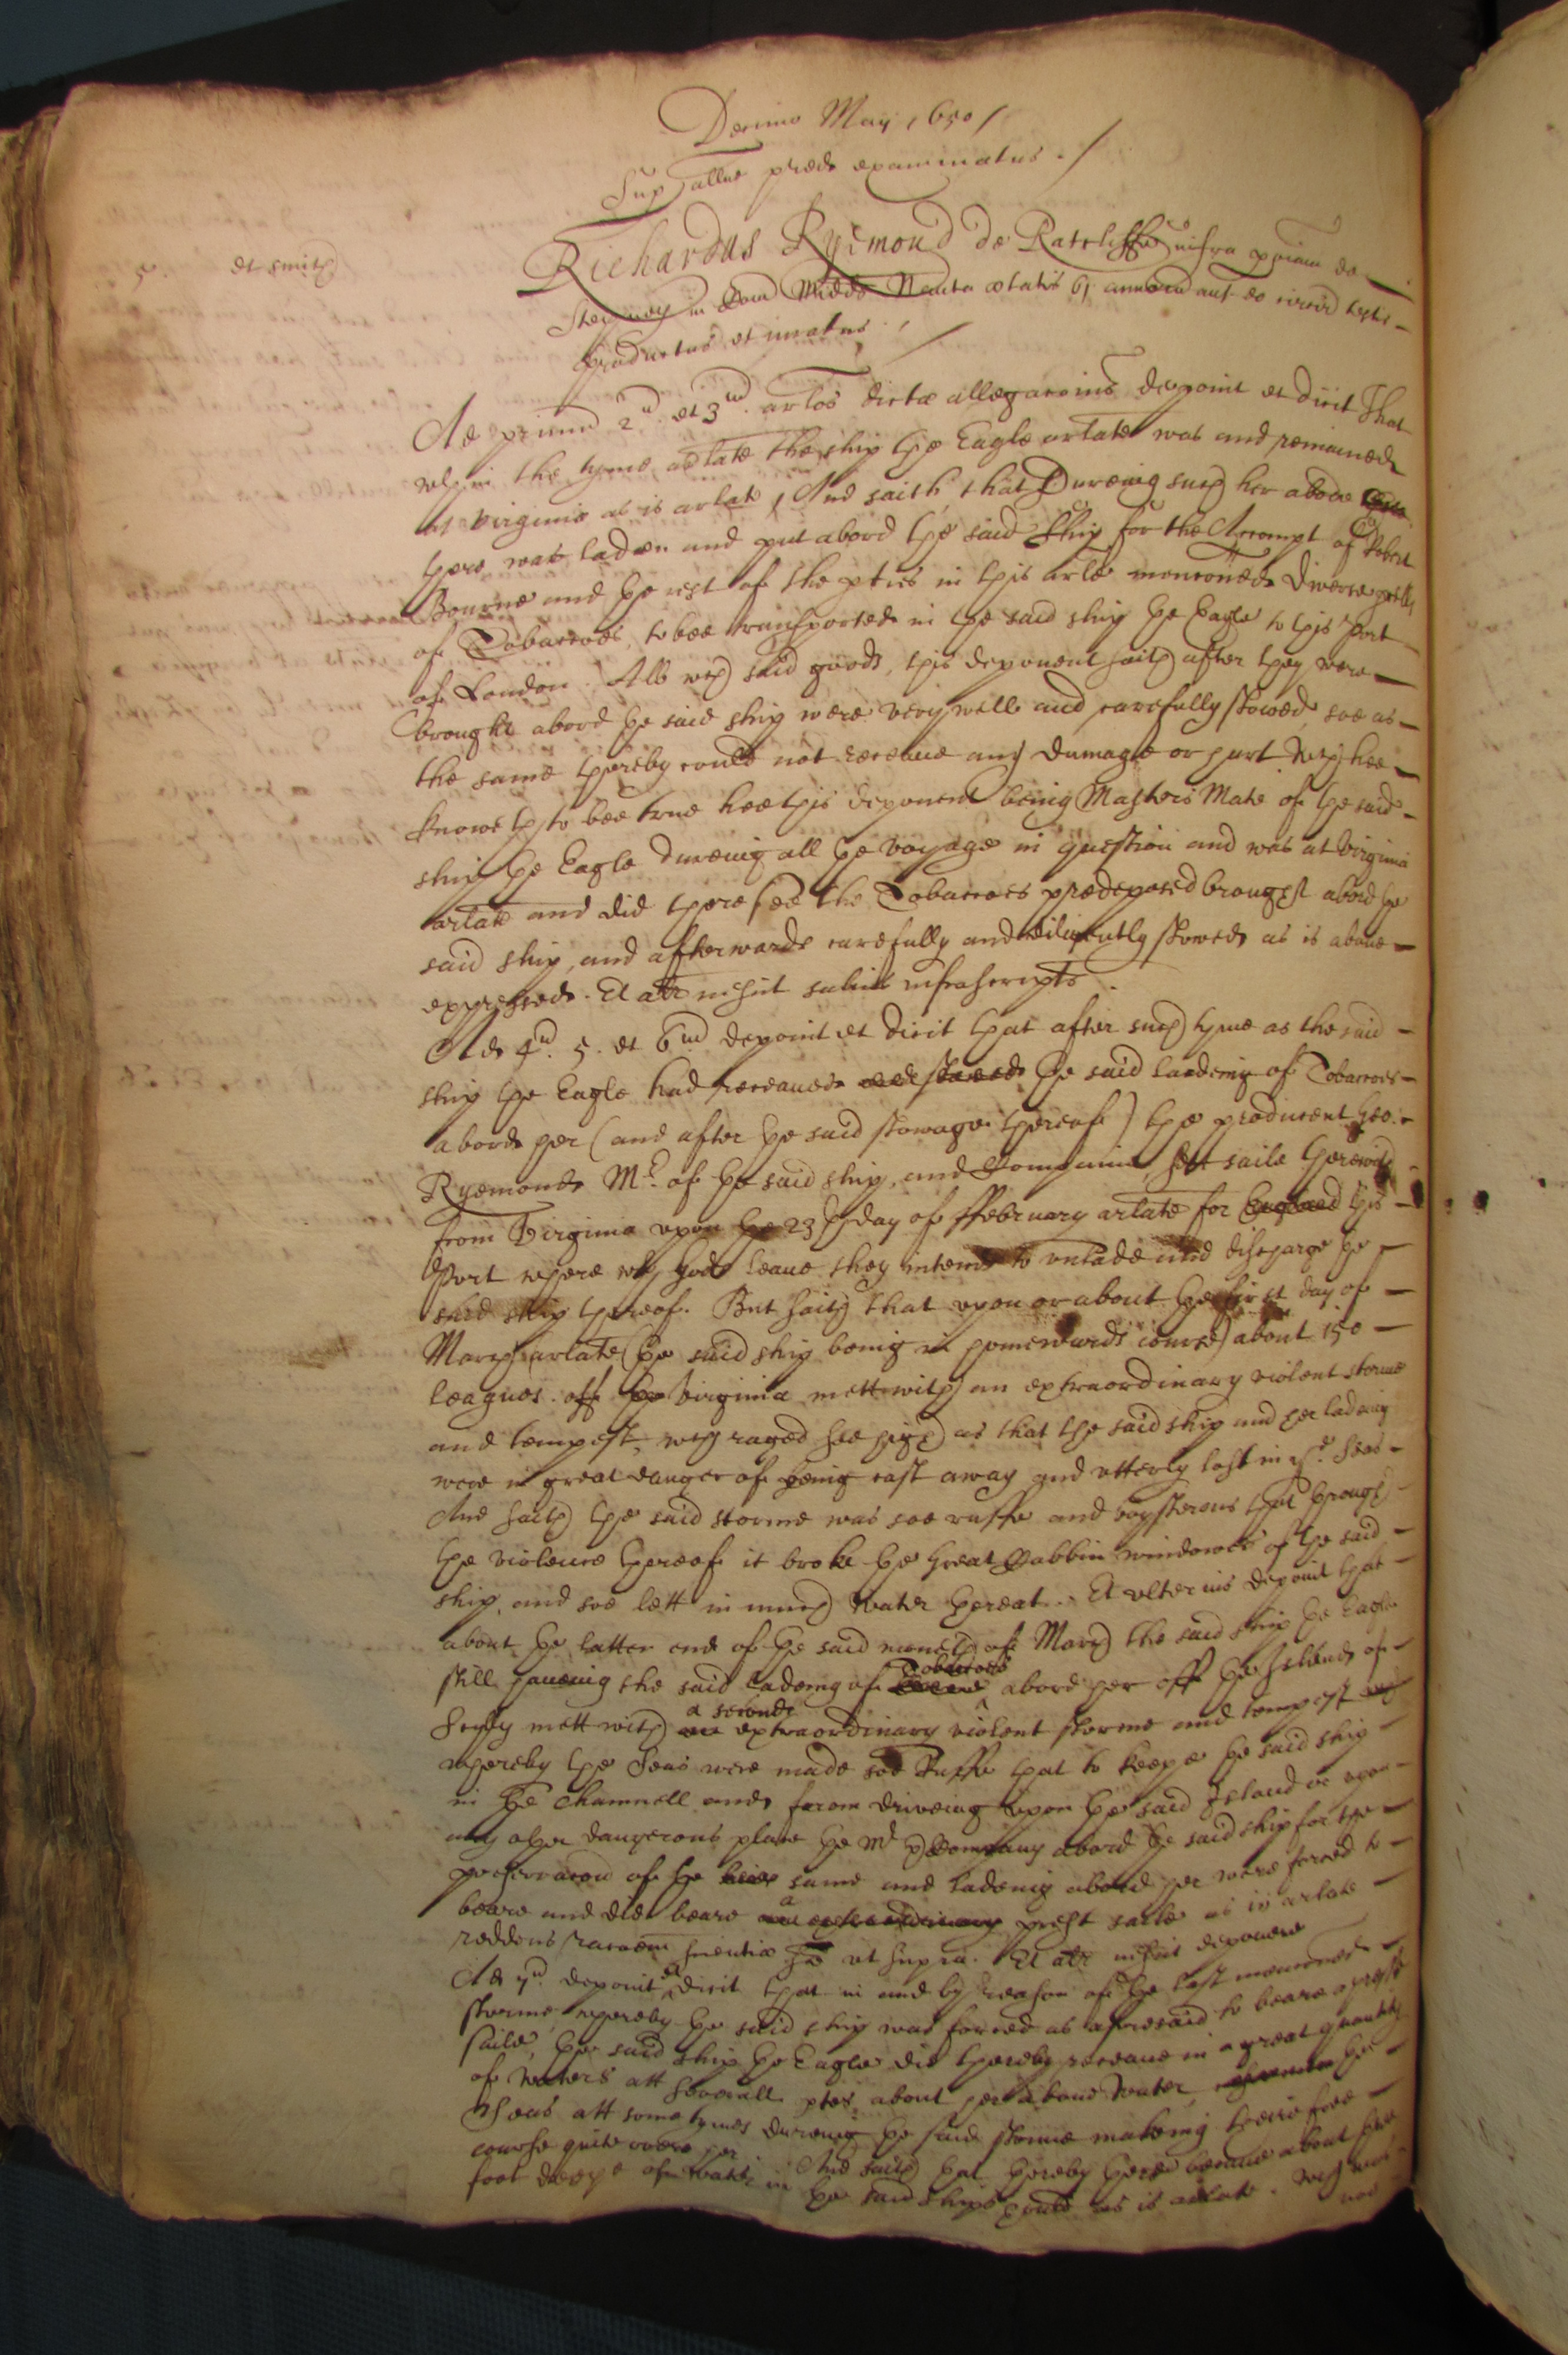 Decimo Maij 1650 /
Sup allne præd examinatus . /
5. dt smith
Richardus Ryemond de Ratcliffe infra pochiam de
Stepney in Com Midds Nauta ætatis 61 annorū aut eo circit testis
productus et iuratus . /
Ad primū 2ū. et 3ū. arlos dictæ allegaōnis deponit et dicit That
wthin the tyme arlate the ship the Eagle arlate was and remained
at Virginia as is arlate, And saith that Dureing such her abode
there was laden and put abord the said Ship for the Accompt of Robert
Bourne and the rest of the pties in this arle menconed Diverse
of Tobaccoes, to bee transported in the said ship the Eagle to this Port
of London. All wch said goods, this deponent saith after they were
brought abord the said ship were very well and carefully stowed, soe as
the same thereby could not receaue any damage or hurt wch hee
knoweth to bee true hee this deponent being Masters Mate of the said
ship the Eagle dureing all the voyage in question and was at Virginia
arlate and did there see the Tobaccoes predeposed brought abord the
said ship, and afterwards carefully and diligently stowed as is aboue
expressed. Et atr nescit salvis infrascriptis.
Ad 4ū. 5. et 6ū deponit et dicit that after such tyme as the said
ship the Eagle had receaued and stowed the said ladeing of Tobaccoes
abord her (and after the said stowage thereof) the producent Geo.
Ryemond Mr. of the said ship, and Companie, sett saile therewth
from Virginia vpon the 23th day of ffebruary arlate for England this
Port where wth gods leaue they intend to vnlade and discharge the
said ship thereof. But saith that vpon or about the first day of
March arlate (the said ship being in homewards course) about 150
leagues off the Virginia mett with an extraordinary violent storme
and tempest, wch raged soe high as that the said ship and her ladeing
were in great danger of being cast away and vtterly lost in ye. seas
And saith the said storme was soe ruffe and boysterous that through
the violence thereof it broke the great Cabbin windowes of the said
ship, and soe lett in much water thereat. Et vlterius deponit that
about the latter end of the said moneth of March the said ship the Eagle
still haueing the said ladeing of Tobaccoes abord her off the Islands of
Scilly mett with a second extraordinary violent storme and tempest
whereby the Seas were made soe Ruffe that to keepe the said ship
in the Channell and from driveing vpon the said Island or vpon
any other dangerous place the Mr & Company abord the said ship for the
preservacon of the same and ladeing abord her were forced to
beare and did beare a prest saile as is arlate
reddens racoem scientiæ suæ vt supra. Et atr nescit deponere
Ad 7ū deponit et dicit that in and by reason of the last menconed
storme, whereby the said ship was forced as aforesaid to beare a prest
saile, the said ship the Eagle did thereby receaue in a great quantity
of waters att severall ptes about her aboue water, the
Seas att some tymes dureing the said storme makeing theire free
course quite ouer her And saith that thereby there became about fiue
foot deepe of water in the said ships hould as is arlate. wch was
not